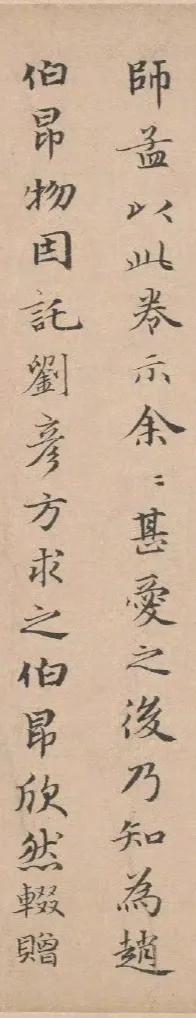 師孟以此卷示余〻甚愛之後乃知為趙
伯昂物因託劉彥方求之伯昂欣然輟贈